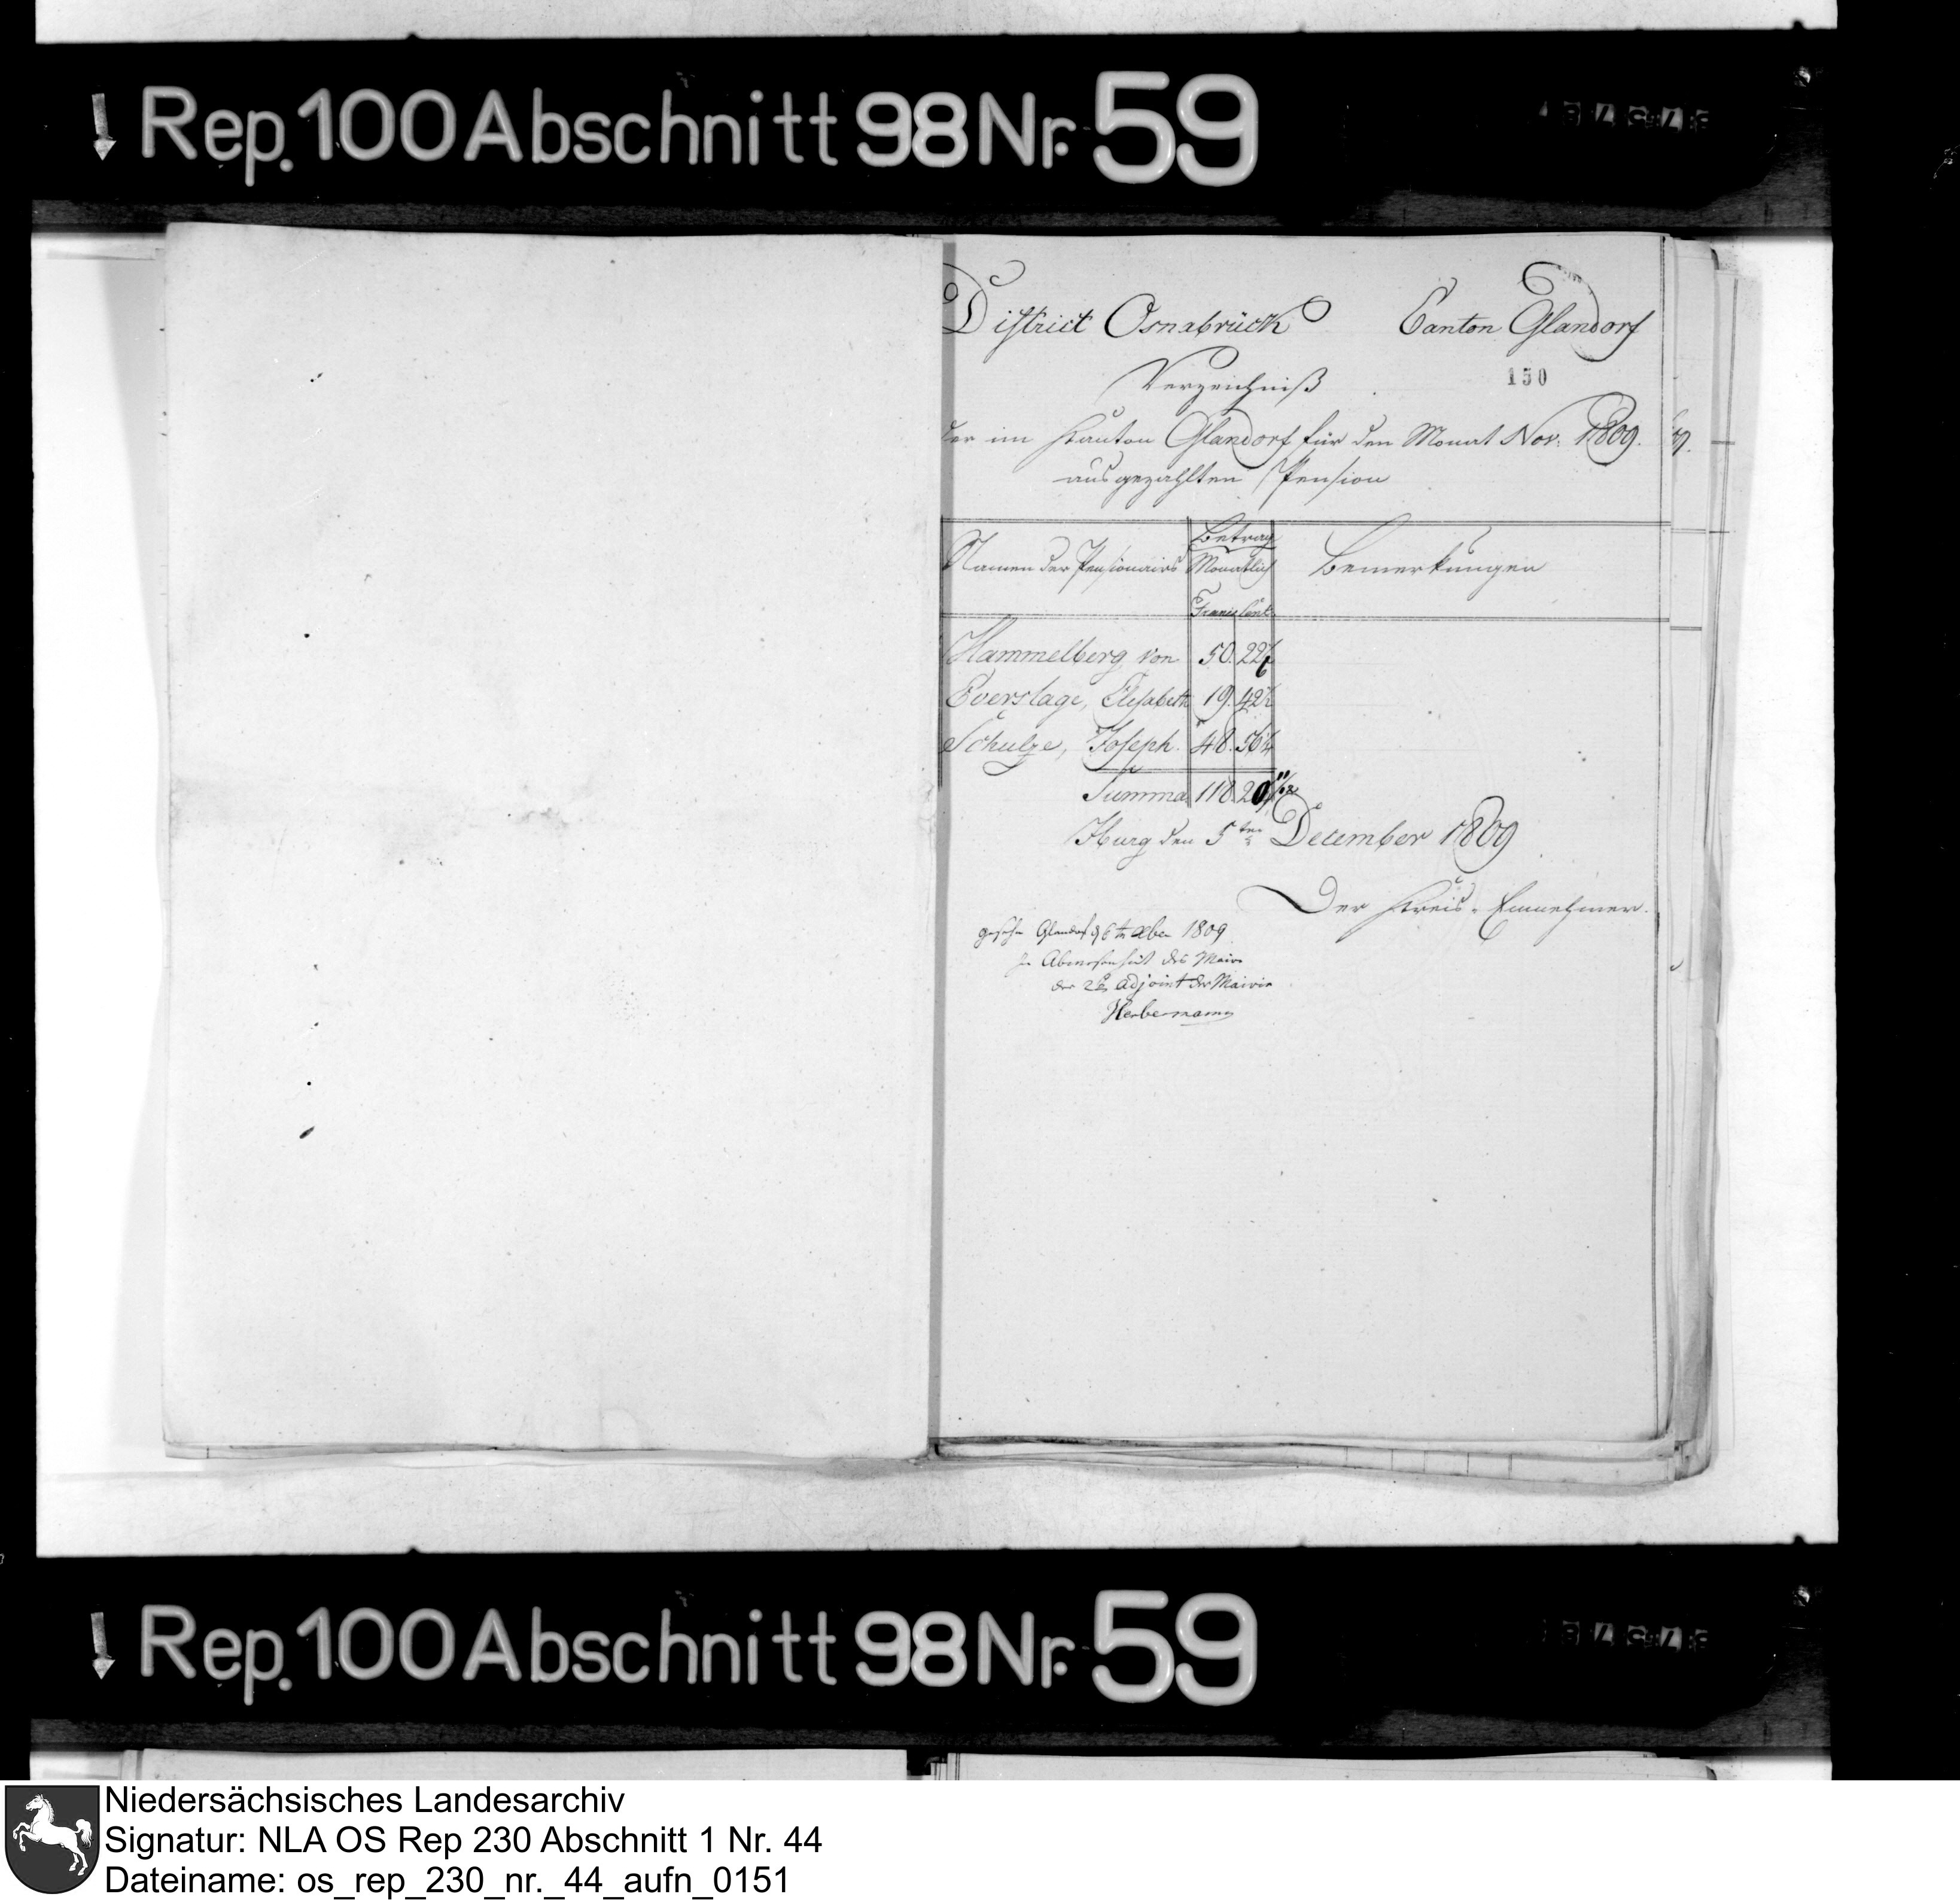 Rep. 100 Abschnitt 98 Nr. 59
District Osnabrück Canton Glandorf
150
Verzeichniß
der im Kanton Glandorf für den Monat Nov. 1809.
ausgezahlten Pension
Namen der Pensionairs Betrag Monatlich Bemerkungen
Francs Cent
Hammelberg von 50. 22
Everslage, Elisabeth 19. 42
Schulze, Joseph. 48. 56
Summa 118. 20 11/12
Iburg den 5ten December 1809
Der Kreis-Einnehmer.
gesehn Glandorf d 6t xber 1809
In Abwesenheit des Maire
der 2te Adjoint der Mairie
Herbermann
Rep. 100 Abschnitt 98 Nr. 59
Niedersächsisches Landesarchiv
Signatur: NLA OS Rep 230 Abschnitt 1 Nr. 44
Dateiname: os_rep_230_nr._44_aufn_0151